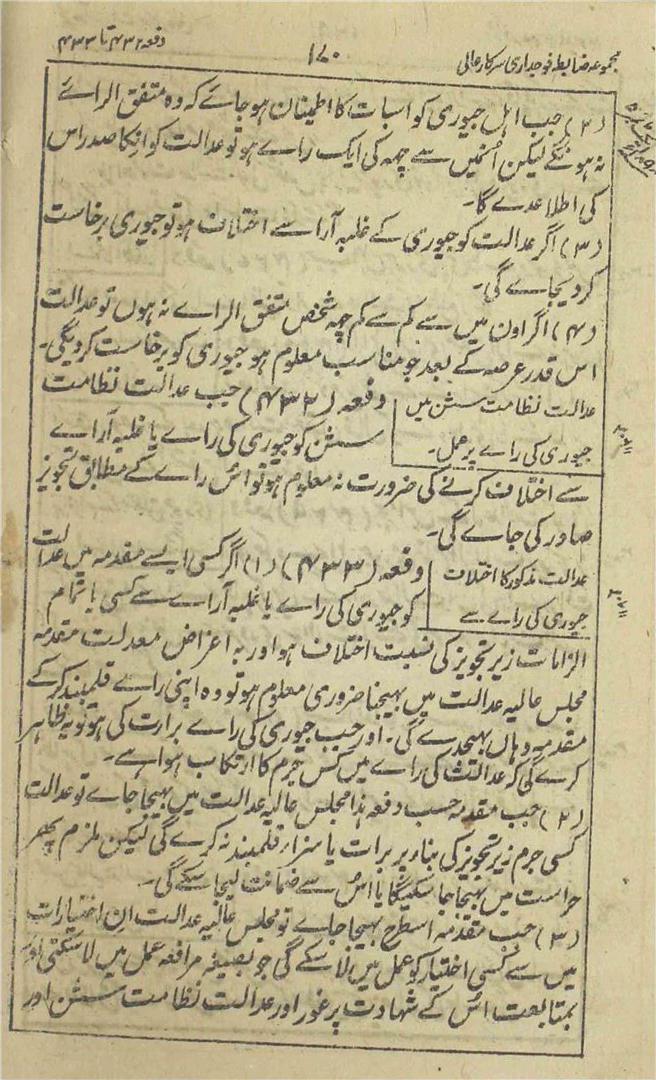 مجموعہ ضابطہ فوجداری سرکار عالی
۱۷۰
دفعہ ۴۳۲ تا ۴۳۳
(۲) جب اہل جیوری کو اسبات کا اطمینان ہو جائے کہ وہ متفق الرائے
نہ ہونگے لیکن اُنمیں سے چہہ کی ایک راے ہو تو عدالت کو انکا صدر اس
کی اطلاع دے گا۔
(۳) اگر عدالت کو جیوری کے غلبہ آرا سے اختلاف ہو تو جیوری برخاست
کر دیجاے گی۔
(۴) اگر اون میں سے کم سے کم چہہ شخص متفق الراے نہ ہوں تو عدالت
اس قدر عرصہ کے بعد جو مناسب معلوم ہو جیوری کو برخاست کردیگی۔
عدالت نظامت سشن میں
جیوری کی راے پر عمل۔
دفعہ (۴۳۲) جب عدالت نظامت
سشن کو جیوری کی راے یا غلبہ آراے
سے اختلاف کرنے کی ضرورت نہ معلوم ہو تو اس راے کے مطابق تجویز
صادر کی جاے گی۔
عدالت مذکور کا اختلاف
جیوری کی راے سے
دفعہ (۴۳۳) (۱) اگر کسی ایسے مقدمہ میں عدالت
کو جیوری کی راے یا غلبہ آراے سے کسی یا تمام
الزامات زیر تجویز کی نسبت اختلاف ہو اور بہ اغراض معدلت مقدمہ
مجلس عالیہ عدالت میں بہیجنا ضروری معلوم ہو تو وہ اپنی راے قلمبند کرکے
مقدمہ وہاں بہیجدے گی۔ اور جب جیوری کی راے برارت کی ہو تو یہ ظاہر
کرے گی کہ عدالت کی راے میں کس جرم کا ارتکاب ہوا ہے۔
(۲) جب مقدمہ حسب دفعہ ہذا مجلس عالیہ عدالت میں بہیجا جاے تو عدالت
کسی جرم زیر تجویز کی بناء پر برات یا سزاء قلمبند نہ کرے گی لیکن ملزم پھر
حراست میں بہیجا جا سکیگا یا اس سے ضمانت لیجا سکے گی۔
(۳) جب مقدمہ اسطرح بہیجا جاے تو مجلس عالیہ عدالت ان اختیارات
میں سے کسی اختیار کو عمل میں لا سکے گی جو بصیغہ مرافعہ عمل میں لا سکتی اور
بمتابعت اس کے شہادت پر غور اور عدالت نظامت سشن اور